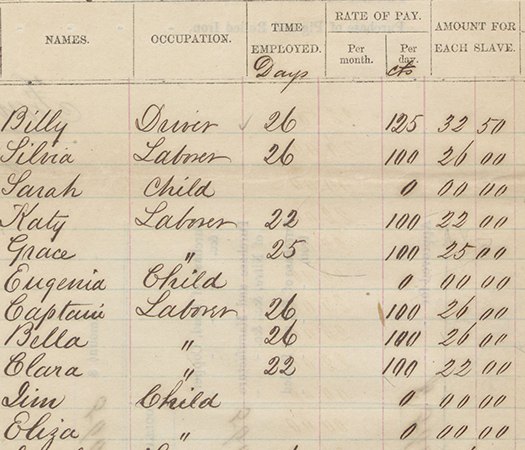 NAMES. OCCUPATION. TIME EMPLOYED. RATE OF PAY. AMOUNT FOR EACH SLAVE.
Days Per month. Per day. cts
Billy Driver 26 125 32 50
Silvia Laborer 26 100 26 00
Sarah Child 0 00 00
Katy Laborer 22 100 22 00
Grace " 25 100 25 00
Eugenia Child 0 00 00
Captain Laborer 26 100 26 00
Bella " 26 100 26 00
Clara " 22 100 22 00
Jim Child 0 00 00
Eliza " 0 00 00